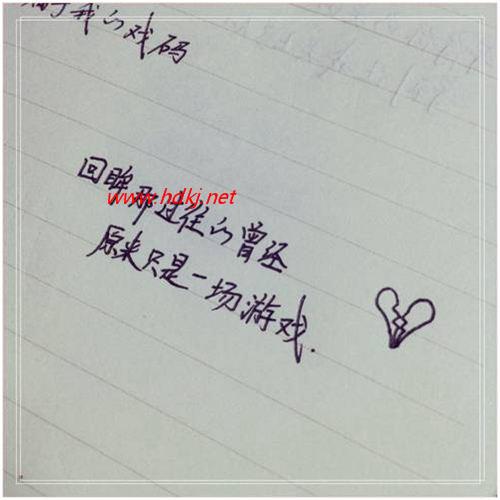 我的戏码
回眸那过往的曾经
www.hdkj.net
原来只是一场游戏.